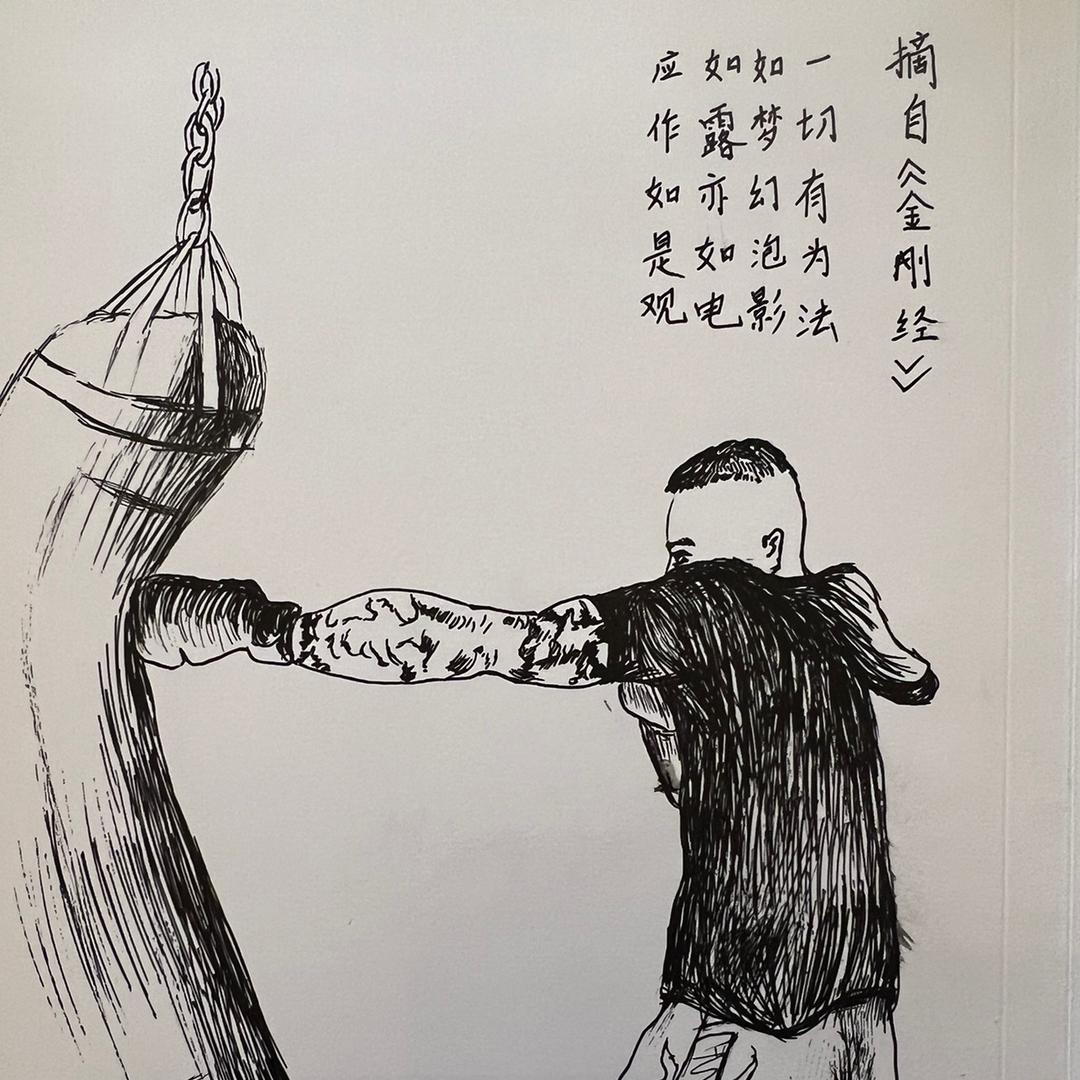 摘自《金刚经》
一切有为法
如梦幻泡影
如露亦如电
应作如是观